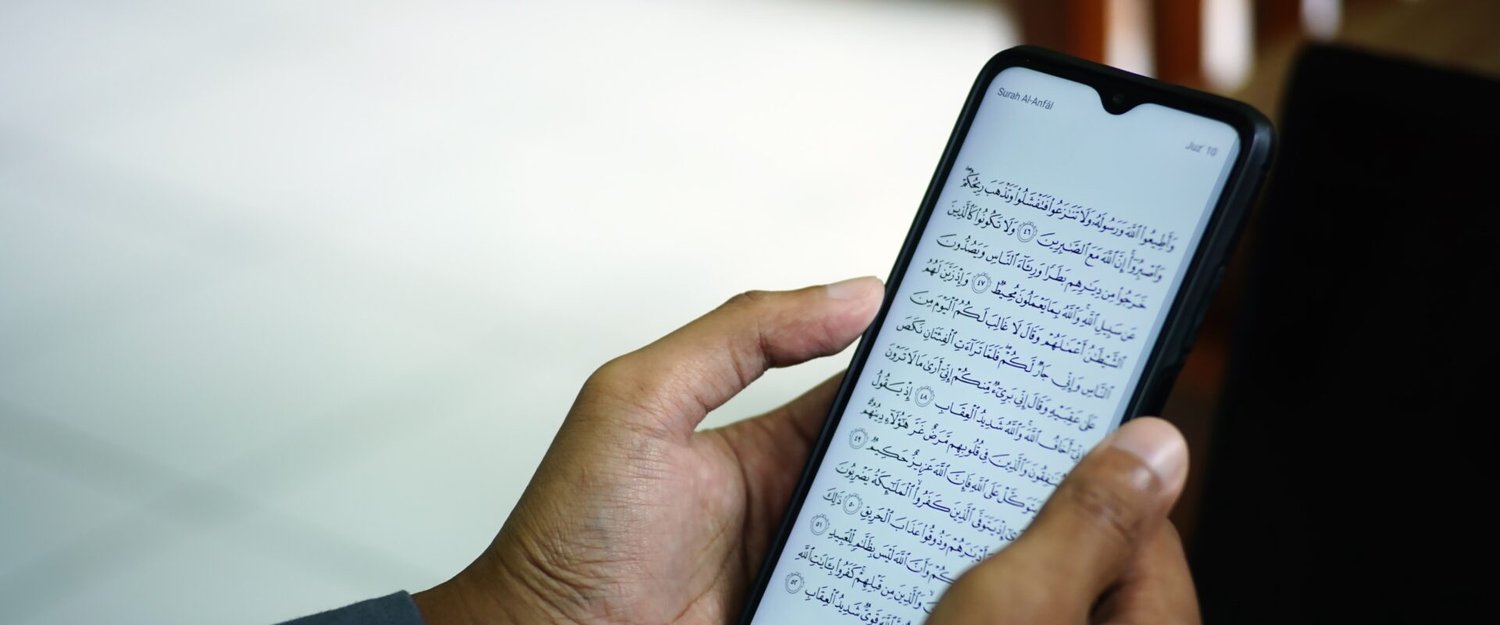 Surah Al-Anfāl
Juz' 10
وَأَطِيعُوا۟ ٱللَّهَ وَرَسُولَهُۥ وَلَا تَنَٰزَعُوا۟ فَتَفْشَلُوا۟ وَتَذْهَبَ رِيحُكُمْ ۖ
وَٱصْبِرُوٓا۟ ۚ إِنَّ ٱللَّهَ مَعَ ٱلصَّٰبِرِينَ ٤٦ وَلَا تَكُونُوا۟ كَٱلَّذِينَ
خَرَجُوا۟ مِن دِيَٰرِهِم بَطَرًا وَرِئَآءَ ٱلنَّاسِ وَيَصُدُّونَ
عَن سَبِيلِ ٱللَّهِ ۚ وَٱللَّهُ بِمَا يَعْمَلُونَ مُحِيطٌ ٤٧ وَإِذْ زَيَّنَ لَهُمُ
ٱلشَّيْطَٰنُ أَعْمَٰلَهُمْ وَقَالَ لَا غَالِبَ لَكُمُ ٱلْيَوْمَ مِنَ
ٱلنَّاسِ وَإِنِّى جَارٌ لَّكُمْ ۖ فَلَمَّا تَرَآءَتِ ٱلْفِئَتَانِ نَكَصَ
عَلَىٰ عَقِبَيْهِ وَقَالَ إِنِّى بَرِىٓءٌ مِّنكُمْ إِنِّىٓ أَرَىٰ مَا لَا تَرَوْنَ
إِنِّىٓ أَخَافُ ٱللَّهَ ۚ وَٱللَّهُ شَدِيدُ ٱلْعِقَابِ ٤٨ إِذْ يَقُولُ
وَٱلَّذِينَ فِى قُلُوبِهِم مَّرَضٌ غَرَّ هَٰٓؤُلَآءِ دِينُهُمْ ۗ
عَلَى ٱللَّهِ فَإِنَّ ٱللَّهَ عَزِيزٌ حَكِيمٌ ٤٩
إِذْ يَتَوَفَّى ٱلَّذِينَ كَفَرُوا۟ ۙ ٱلْمَلَٰٓئِكَةُ يَضْرِبُونَ
وَأَدْبَٰرَهُمْ وَذُوقُوا۟ عَذَابَ ٱلْحَرِيقِ ٥٠ ذَٰلِكَ
وَأَنَّ ٱللَّهَ لَيْسَ بِظَلَّٰمٍ لِّلْعَبِيدِ ٥١
وَٱلَّذِينَ مِن قَبْلِهِمْ ۚ كَفَرُوا۟ بِـَٔايَٰتِ ٱللَّهِ
ٱللَّهَ قَوِىٌّ شَدِيدُ ٱلْعِقَابِ ٥٢